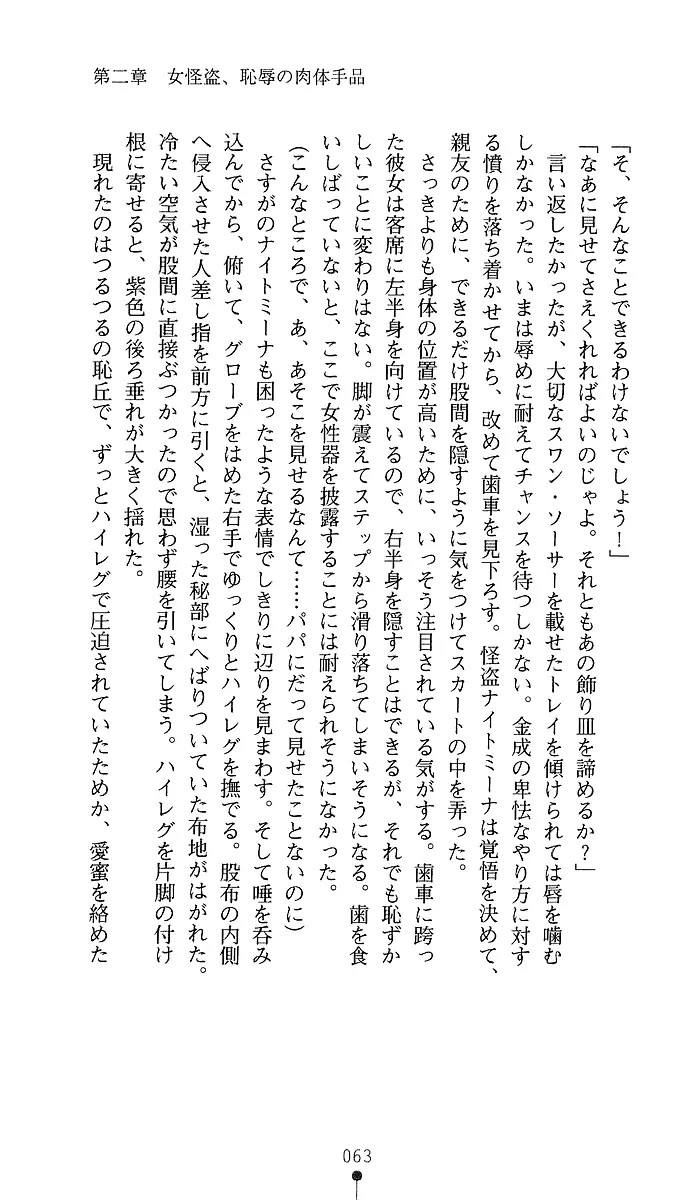 第二章　女怪盗、恥辱の肉体手品
「そ、そんなことできるわけないでしょう！」
「なあに見せてさえくれればよいのじゃよ。それともあの飾り皿を諦めるか？」
　言い返したかったが、大切なスワン・ソーサーを載せたトレイを傾けられては唇を噛む
しかなかった。いまは辱めに耐えてチャンスを待つしかない。金成の卑怯なやり方に対す
る憤りを落ち着かせてから、改めて歯車を見下ろす。怪盗ナイトミーナは覚悟を決めて、
親友のために、できるだけ股間を隠すように気をつけてスカートの中を弄った。
　さっきよりも身体の位置が高いために、いっそう注目されている気がする。歯車に跨っ
た彼女は客席に左半身を向けているので、右半身を隠すことはできるが、それでも恥ずか
しいことに変わりはない。脚が震えてステップから滑り落ちてしまいそうになる。歯を食
いしばっていないと、ここで女性器を披露することには耐えられそうになかった。
（こんなところで、あ、あそこを見せるなんて……パパにだって見せたことないのに）
　さすがのナイトミーナも困ったような表情でしきりに辺りを見まわす。そして唾を呑み
込んでから、俯いて、グローブをはめた右手でゆっくりとハイレグを撫でる。股布の内側
へ侵入させた人差し指を前方に引くと、湿った秘部にへばりついていた布地がはがれた。
冷たい空気が股間に直接ぶつかったので思わず腰を引いてしまう。ハイレグを片脚の付け
根に寄せると、紫色の後ろ垂れが大きく揺れた。
　現れたのはつるつるの恥丘で、ずっとハイレグで圧迫されていたためか、愛蜜を絡めた
063